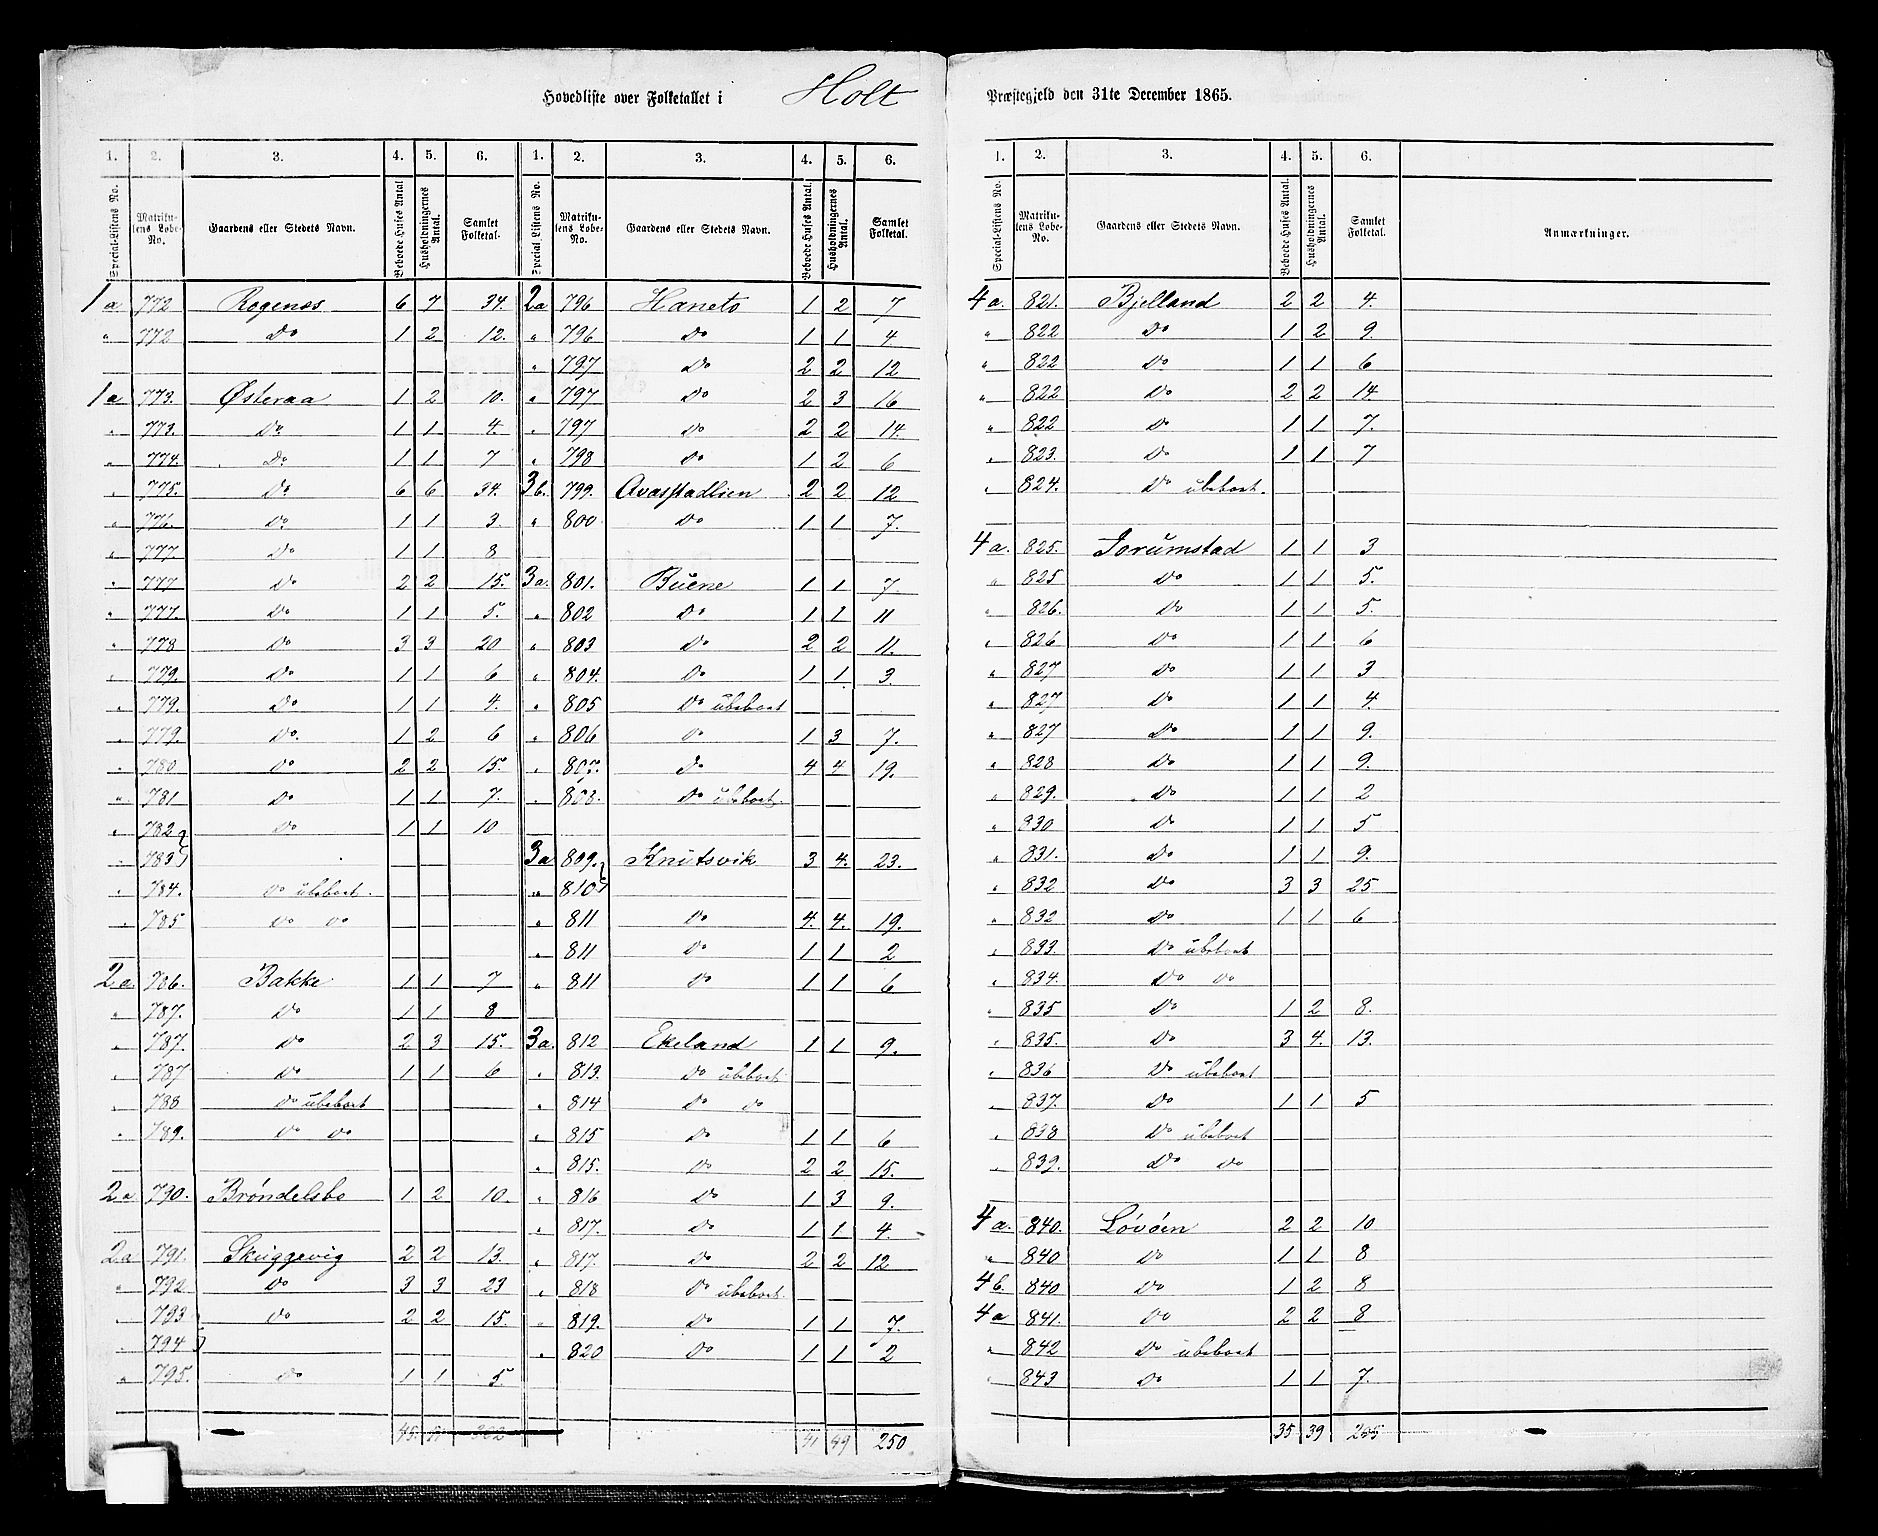 Hovedliste over Folketallet i Holt Præstegjeld den 31te December 1865.
1. 2. 3. 4. 5. 6.
Special-Listens No. Matrikulens Lobe-No. Gaardens eller Stedets Navn. Beboede Huses Antal Husholdningernes Antal. Samlet Folketal.
1 a 772 Rogenæs 6 7 34.
" 772 Do 1 2 12.
1 a 773. Østeraa 1 2 10.
" 773. Do 1 1 4.
" 774. Do 1 1 7
" 775. Do 6 6 34.
" 776. Do 1 1 3.
" 777. Do 1 1 8
" 777 Do 2 2 15.
" 777. Do 1 1 5.
" 778 Do 3 3 20
" 779. Do 1 1 6
" 779. Do 1 1 4.
" 779. Do 1 2 6
" 780 Do 2 2 15.
" 781 Do 1 1 7.
" 782 Do 1 1 10
" 783
" 784. Do ubeboet.
" 785 Do Do
2 a 786. Bakke 1 1 7
" 787. Do 1 1 8
" 787. Do 2 3 15.
" 787 Do 1 1 6
" 788 Do ubeboet
" 789. Do Do
2 a 790. Brøndelsbo 1 2 10.
2 a 791. Skuggevig 2 2 13.
" 792. Do 3 3 23
" 793 Do 2 2 15.
" 794
" 795. Do 1 1 5.
45. 302
1. 2. 3. 4. 5. 6.
Special Listens No. Matrikulens Lobe-No. Gaardens eller Stedets Navn. Beboede Huses Antal. Husholdningernes Antal. Samlet Folketal.
2 a 796 Haneto 1 2 7
" 796 Do 1 1 4
" 797 Do 2 2 12
" 797 Do 2 3 16
" 797 Do 2 2 14.
" 798 Do 1 2 6
3 b. 799. Avasstadlien 2 2 12
" 800 Do 1 1 7.
3 a. 801. Buene 1 1 7.
" 802 Do 1 1 11
" 803 Do 2 2 11.
" 804. Do 1 1 3.
" 805 Do ubeboet
" 806 Do 1 3 7.
" 807. Do 4 4 19.
" 808. Do ubeboet.
3 a 809. Knutsvik 3 4. 23.
" 810
" 811 Do 4. 4. 19.
" 811 Do 1 1 2
" 811 Do 1 1 6
3 a. 812 Ekeland 1 1 9.
" 813. Do ubeboet
" 814 Do Do
" 815 Do 1 1 6
" 815. Do 2 2 15.
" 816 Do 1 3 9.
" 817. Do 1 1 4
" 817. Do 2 2 12
" 818 Do ubeboet.
" 819. Do 1 1 7.
" 820 Do 1 1 2
41 49 250
1. 2. 3. 4. 5. 6.
Special-Listens No. Matrikulens Lobe-No. Gaardens eller Stedets Navn. Beboede Huses Antal. Husholdningernes Antal. Samlet Folketal. Anmærkninger.
4 a. 821. Bjelland 2 2 4.
" 822 Do 1 2 9.
" 822 Do 1 1 6
" 822 Do 2 2 14
" 822 Do 1 1 7.
" 823. Do 1 1 7
" 824. Do ubeboet.
4 a. 825. Jorumstad 1 1 3
" 825 Do 1 1 5.
" 826. Do 1 1 5.
" 826 Do 1 1 6
" 827 Do 1 1 3
" 827 Do 1 1 4.
" 827 Do 1 1 9.
" 828 Do 1 1 9.
" 829. Do 1 1 2
" 830 Do 1 1 5
" 831. Do 1 1 9.
" 832 Do 3 3 25
" 832 Do 1 1 6
" 833. Do ubeboet
" 834. Do Do
" 835 Do 1 2 8.
" 835. Do 3 4. 13.
" 836 Do ubeboet
" 837. Do 1 1 5
" 838 Do ubeboet
" 839. Do Do
4 a. 840. Løvøen 2 2 10
" 840 Do 1 1 8
4 b. 840 Do 1 2 8
4 a 841. Do 2 2 8
" 842 Do ubeboet
" 843 Do 1 1 7.
35 39